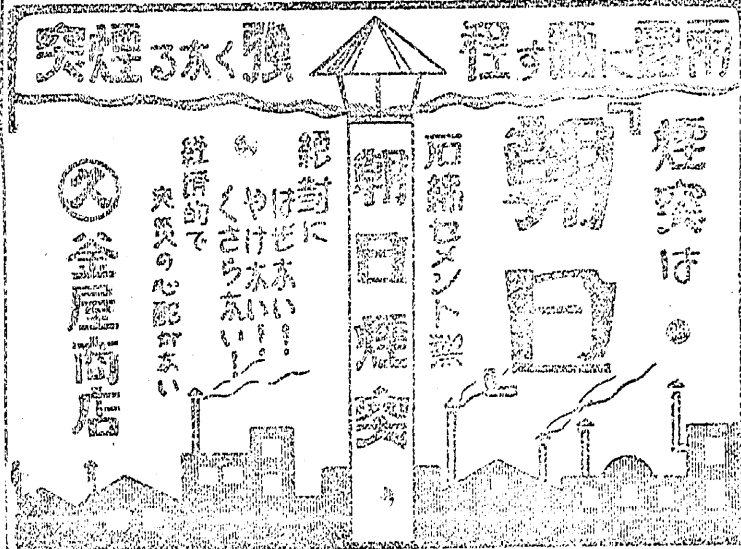 雨露に晒す程
強くなる煙突
煙突は
「朝日
石綿セメント製
朝日煙突
絶対に
はぜない!
やけない!
くさらない!
経済的で
火災の心配がない
釜屋商店